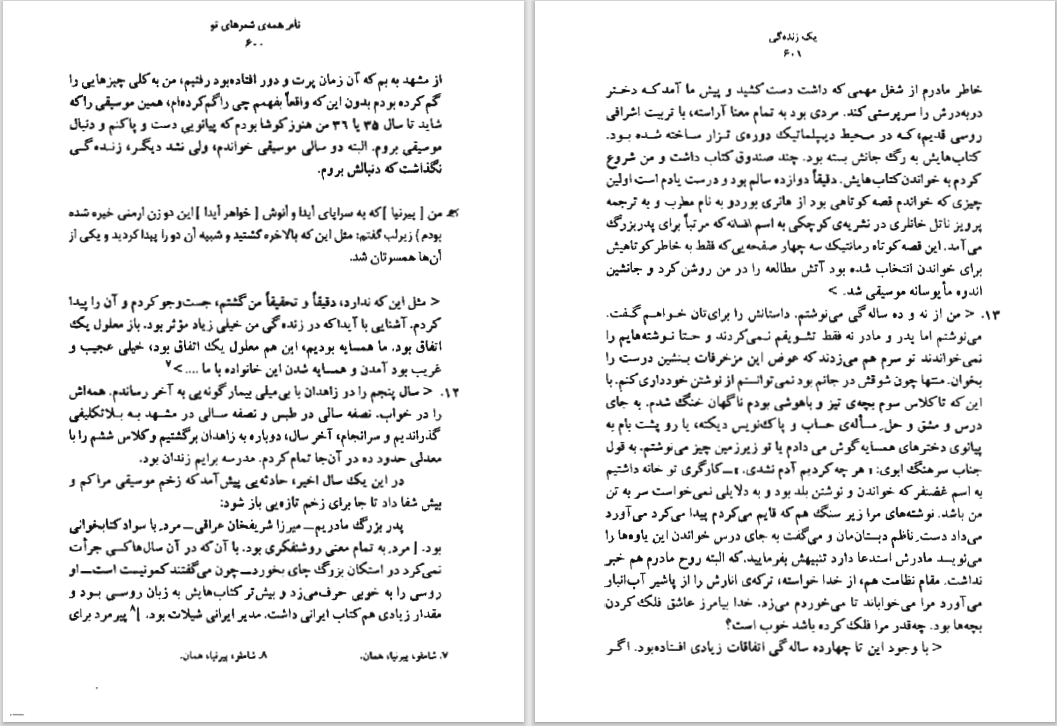 نام همه‌ی شعرهای تو
۶۰۰
از مشهد به بم که آن زمان پرت و دور افتاده‌بود رفتیم، من به کلی چیزهایی را
گم کرده بودم بدون این که واقعاً بفهمم چی را گم کرده‌ام، همین موسیقی را که
شاید تا سال ۳۵ یا ۳۶ من هنوز کوشا بودم که پیانویی دست و پا کنم و دنبال
موسیقی بروم. البته دو سالی موسیقی خواندم، ولی نشد دیگر، زنده‌گی
نگذاشت که دنبالش بروم.
من [ پیرنیا ] که به سراپای آیدا و آنوش [ خواهر آیدا ] این دو زن ارمنی خیره شده
بودم } زیرلب گفتم: مثل این که بالاخره گشتید و شبیه آن دو را پیدا کردید و یکی از
آن‌ها همسرتان شد.
< مثل این که ندارد، دقیقاً و تحقیقاً من گشتم، جست‌وجو کردم و آن را پیدا
کردم. آشنایی با آیدا که در زنده‌گی من خیلی زیاد مؤثر بود. باز معلول یک
اتفاق بود. ما همسایه بودیم، این هم معلول یک اتفاق بود، خیلی عجیب و
غریب بود آمدن و همسایه شدن این خانواده با ما .... >۷
۱۲. < سال پنجم را در زاهدان با بی‌میلی بیمارگونه‌یی به آخر رساندم. همه‌اش
را در خواب. نصفه سالی در طبس و نصفه سالی در مشهد به بلاتکلیفی
گذراندیم و سرانجام، آخر سال، دوباره به زاهدان برگشتیم و کلاس ششم را با
معدلی حدود ده در آن‌جا تمام کردم. مدرسه برایم زندان بود.
در این یک سال اخیر، حادثه‌یی پیش آمد که زخم موسیقی مرا کم و
بیش شفا داد تا جا برای زخم تازه‌یی باز شود:
پدر بزرگ مادریم ــ میرزا شریفخان عراقی ــ مردِ با سواد کتابخوانی
بود. [ مردِ به تمام معنی روشنفکری بود. با آن که در آن سال‌ها کسی جرأت
نمی‌کرد در استکان بزرگ چای بخورد ــ چون می‌گفتند کمونیست است ــ او
روسی را به خوبی حرف‌می‌زد و بیش‌تر کتاب‌هایش به زبان روسی بود و
مقدار زیادی هم کتاب ایرانی داشت. مدیر ایرانی شیلات بود. ]۸ پیرمرد برای
۷. شاملو، پیرنیا، همان. ۸. شاملو، پیرنیا، همان.
یک زنده‌گی
۶۰۱
خاطر مادرم از شغل مهمی که داشت دست کشید و پیش ما آمد که دختر
دربه‌درش را سرپرستی کند. مردی بود به تمام معنا آراسته، با تربیت اشرافی
روسی قدیم، که در محیط دیپلماتیک دوره‌ی تزار ساخته شده بود.
کتاب‌هایش به رگ جانش بسته بود. چند صندوق کتاب داشت و من شروع
کردم به خواندن کتاب‌هایش. دقیقاً دوازده سالم بود و درست یادم است اولین
چیزی که خواندم قصه کوتاهی بود از هانری بوردو به نام مطرب و به ترجمه
پرویز ناتل خانلری در نشریه‌ی کوچکی به اسم افسانه که مرتباً برای پدربزرگ
می‌آمد. این قصه کوتاه رمانتیک سه چهار صفحه‌یی که فقط به خاطر کوتاهیش
برای خواندن انتخاب شده بود آتش مطالعه را در من روشن کرد و جانشین
اندوه مأیوسانه موسیقی شد. >
۱۳. < من از نه و ده ساله‌گی می‌نوشتم. داستانش را برای‌تان خواهم گفت.
می‌نوشتم اما پدر و مادر نه فقط تشویقم نمی‌کردند و حتا نوشته‌هایم را
نمی‌خواندند تو سرم هم می‌زدند که عوض این مزخرفات بنشین درست را
بخوان. منتها چون شوقش در جانم بود نمی‌توانستم از نوشتن خودداری کنم. با
این که تا کلاس سوم بچه‌ی تیز و باهوشی بودم ناگهان خنگ شدم. به جای
درس و مشق و حل مسأله‌ی حساب و پاک‌نویس دیکته، یا رو پشت بام به
پیانوی دخترهای همسایه گوش می دادم یا تو زیرزمین چیز می‌نوشتم. به قول
جناب سرهنگ ابوی: « هر چه کردیم آدم نشدی. » ــ کارگری تو خانه داشتیم
به اسم غضنفر که خواندن و نوشتن بلد بود و به دلایلی نمی‌خواست سر به تن
من باشد. نوشته‌های مرا زیر سنگ هم که قایم می‌کردم پیدا می‌کرد می‌آورد
می‌داد دستِ ناظم دبستان‌مان و می‌گفت به جای درس خواندن این یاوه‌ها را
می‌نویسد مادرش استدعا دارد تنبیهش بفرمایید. که البته روح مادرم هم خبر
نداشت. مقام نظامت هم، از خدا خواسته، ترکه‌ی انارش را از پاشیر آب‌انبار
می‌آورد مرا می‌خواباند تا می‌خوردم می‌زد. خدا بیامرز عاشق فلک کردن
بچه‌ها بود. چه‌قدر مرا فلک کرده باشد خوب است؟
< با وجود این تا چهارده ساله‌گی اتفاقات زیادی افتاده‌بود. اگر